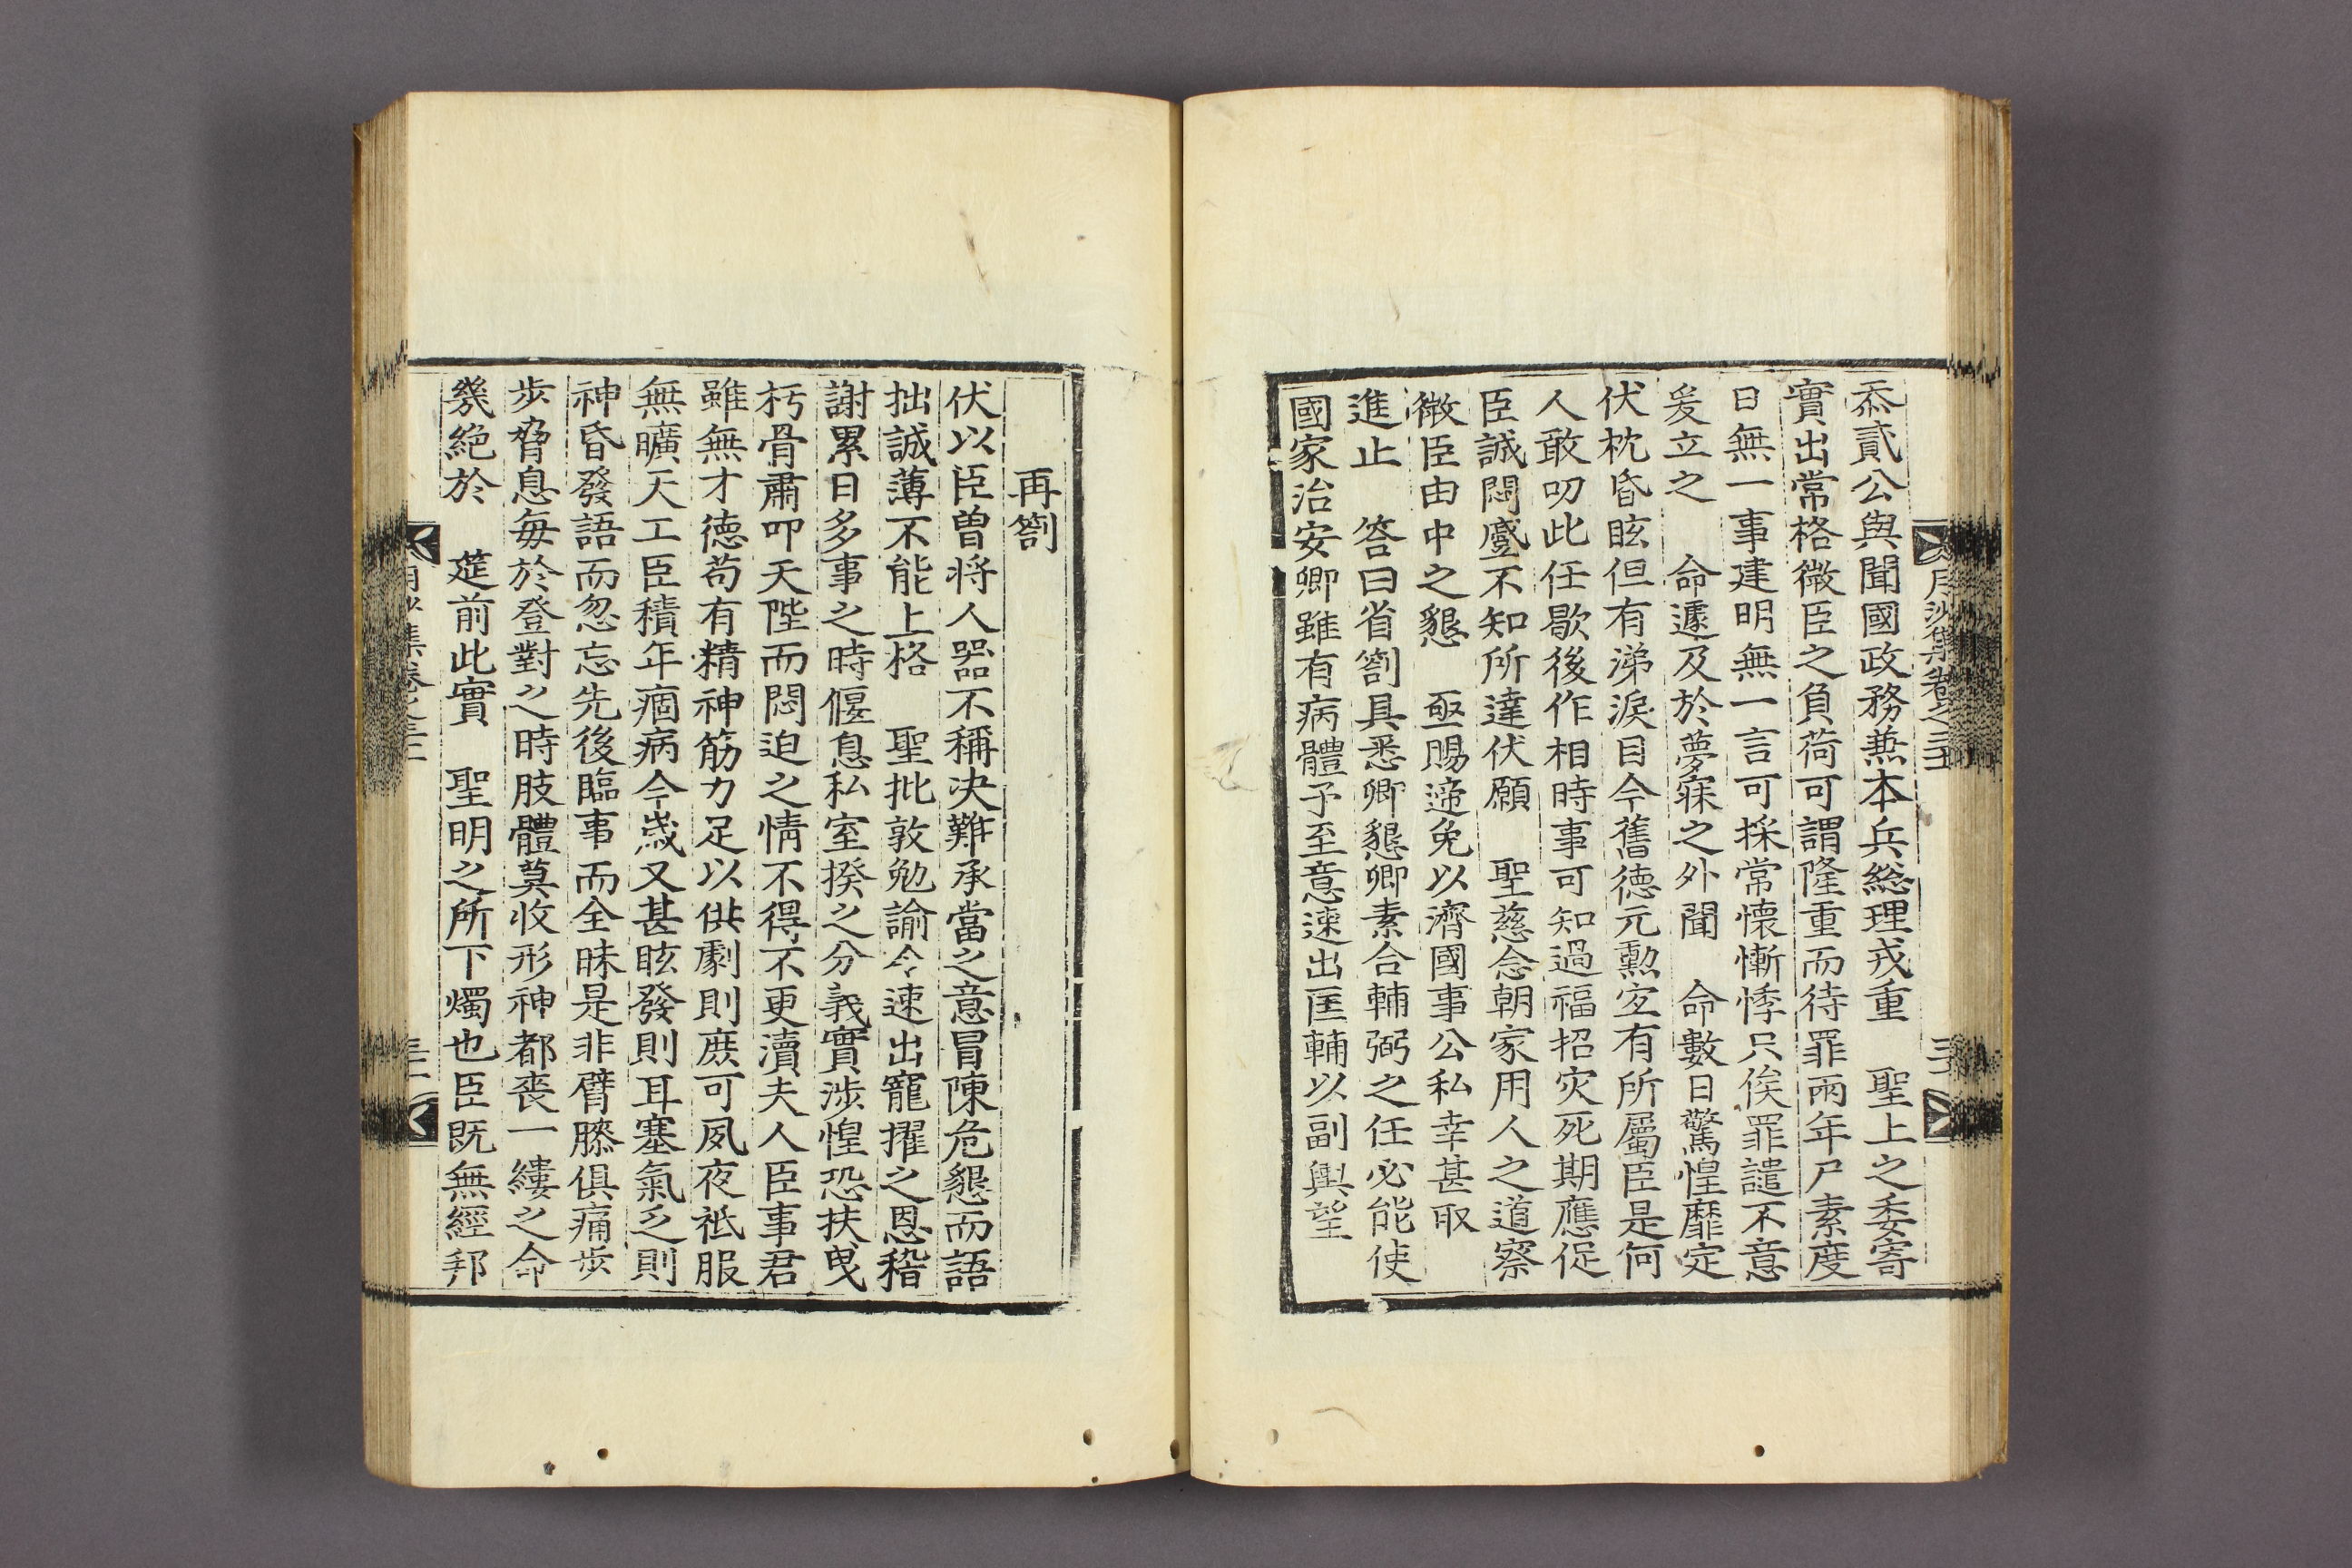 月沙集卷之三十
忝貳公與聞國政務兼本兵総理戎重　聖上之委寄
實出常格微臣之負荷可謂隆重而待罪兩年尸素度
日無一事建明無一言可採常懷慚悸只俟罪譴不意
爰立之　命遽及於夢寐之外聞　命數日驚惶靡定
伏枕昏眩但有涕淚目今舊德元勲㝎有所屬臣是何
人敢叨此任歇後作相時事可知過福招灾死期應促
臣誠悶蹙不知所達伏願　聖慈念朝家用人之道察
微臣由中之懇　亟賜遞免以濟國事公私幸甚取
進止　答曰省箚具悉卿懇卿素合輔弼之任必能使
國家治安卿雖有病體予至意速出匡輔以副輿望
再箚
伏以臣曾将人器不稱决難承當之意冒陳危懇而語
拙誠薄不能上格　聖批敦勉諭令速出寵擢之恩稽
謝累日多事之時偃息私室揆之分義實涉惶恐扶曳
朽骨肅叩天陛而悶迫之情不得不更瀆夫人臣事君
雖無才德苟有精神筋力足以供劇則庶可夙夜祗服
無曠天工臣積年痼病今歲又甚眩發則耳塞氣乏則
神昏發語而忽忘先後臨事而全昧是非臂膝俱痛步
步脅息每於登對之時肢體莫收形神都喪一縷之命
幾絶於　筵前此實　聖明之所下燭也臣既無經邦